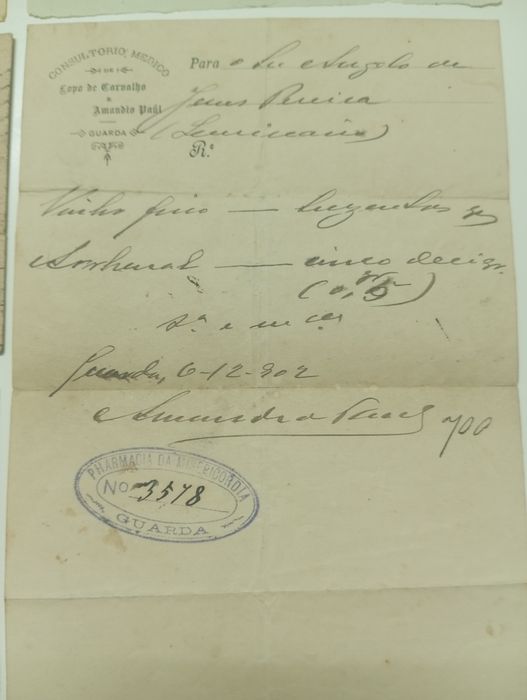 CONSULTORIO MEDICO
DE
Lopo de Carvalho
E
Amandio Paúl
GUARDA
Para o Sr. Angelo de
Jesus Pereira
(Seminario)
R.e
Vinho fino — duzentos gr
— cinco decigr.
(0,gr5)
Guarda, 6-12-902
Amandio Paul
700
PHARMACIA DA MISERICORDIA
No 3578
GUARDA